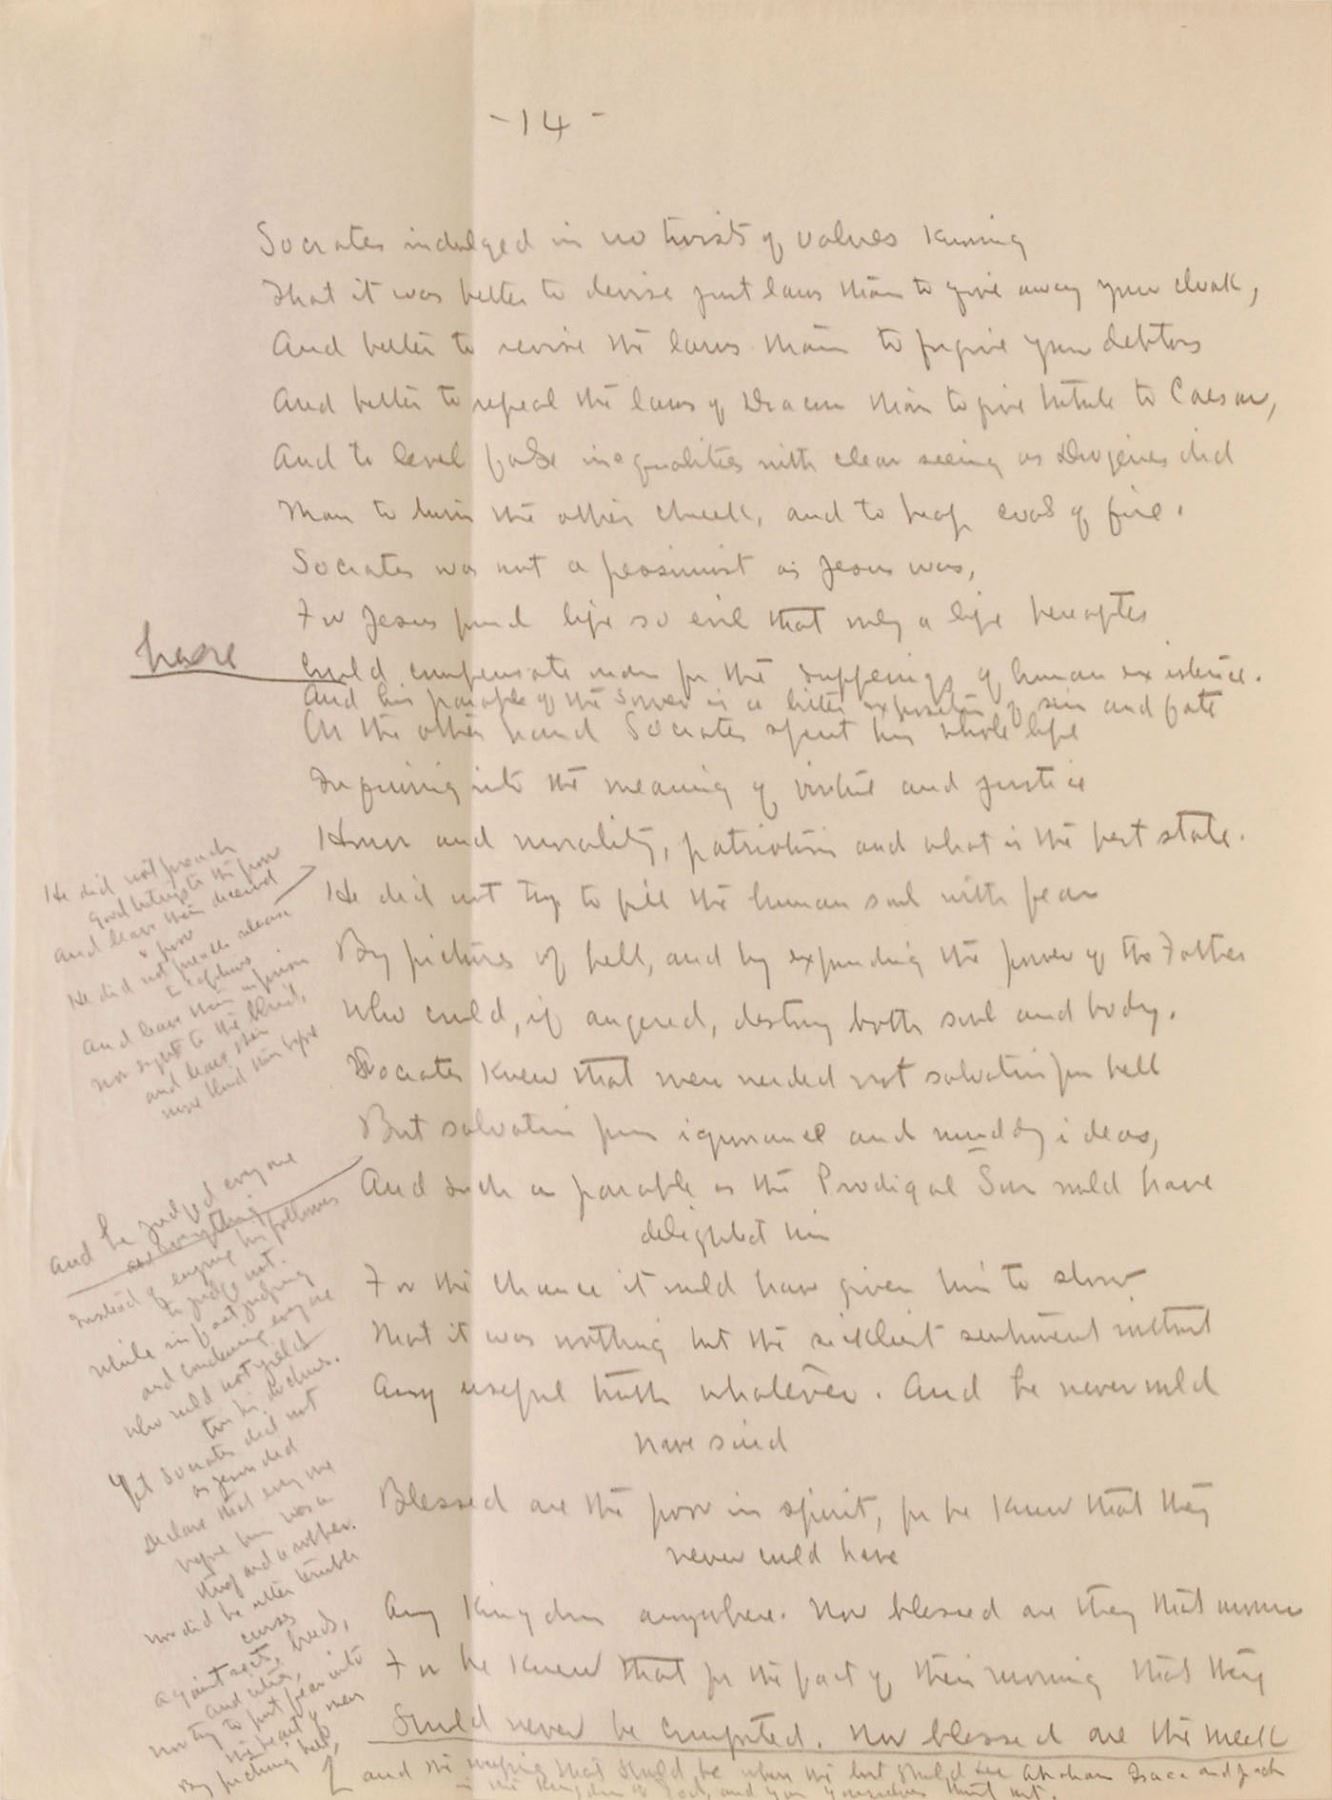 -14-
Socrates indulged in no twists of values knowing
That it was better to devise just laws than to give away your cloak,
And better to revise the laws than to forgive your debtors
And better to repeal the laws of Dracon than to give tribute to Caesar,
And to level false inequalities with clear seeing as Diogenes did
Than to turn the other cheek, and to heap coals of fire.
Socrates was not a pessimist as Jesus was,
For Jesus found life so evil that only a life hereafter
here
Could compensate men for the sufferings of human existence.
And his parable of the sower is a bitter exposition of sin and fate
On the other hand Socrates spent his whole life
Inquiring into the meaning of virtue and justice
Honor and morality, patriotism and what is the best state.
He did not preach
Good tidings to the poor
And leave them deceived
& poor
He did not preach release
to captives
And leave them in prison
Nor sight to the blind,
and leave them
more blind than before
He did not try to fill the human soul with fear
By pictures of hell, and by expounding the power of the Father
Who could, if angered, destroy both soul and body.
Socrates knew that men needed not salvation from hell
But salvation from ignorance and muddy ideas,
and he judged everyone
and everything
Instead of urging his followers
to judge not.
While in fact judging
and condemning everyone
who would not yield
to his doctrines.
Yet Socrates did not
as Jesus did
Declare that every one
before him was a
thief and a robber.
Nor did he utter terrible
curses
against sects, breeds,
and cities,
Nor try to put fear into
the heart of men
By preaching hell,
And such a parable as the Prodigal Son would have
delighted him
For the chance it would have given him to show
That it was nothing but the sickliest sentiment without
Any useful truth whatever. And he never would
have said
Blessed are the poor in spirit, for he knew that they
never could have
Any kingdom anywhere. Nor blessed are they that mourn
For he knew that for the fact of their mourning that they
Could never be comforted. Nor blessed are the meek
and the weeping that should be when the lost should see Abraham Isaac and Jacob
in the kingdom of God, and you yourselves thrust out.